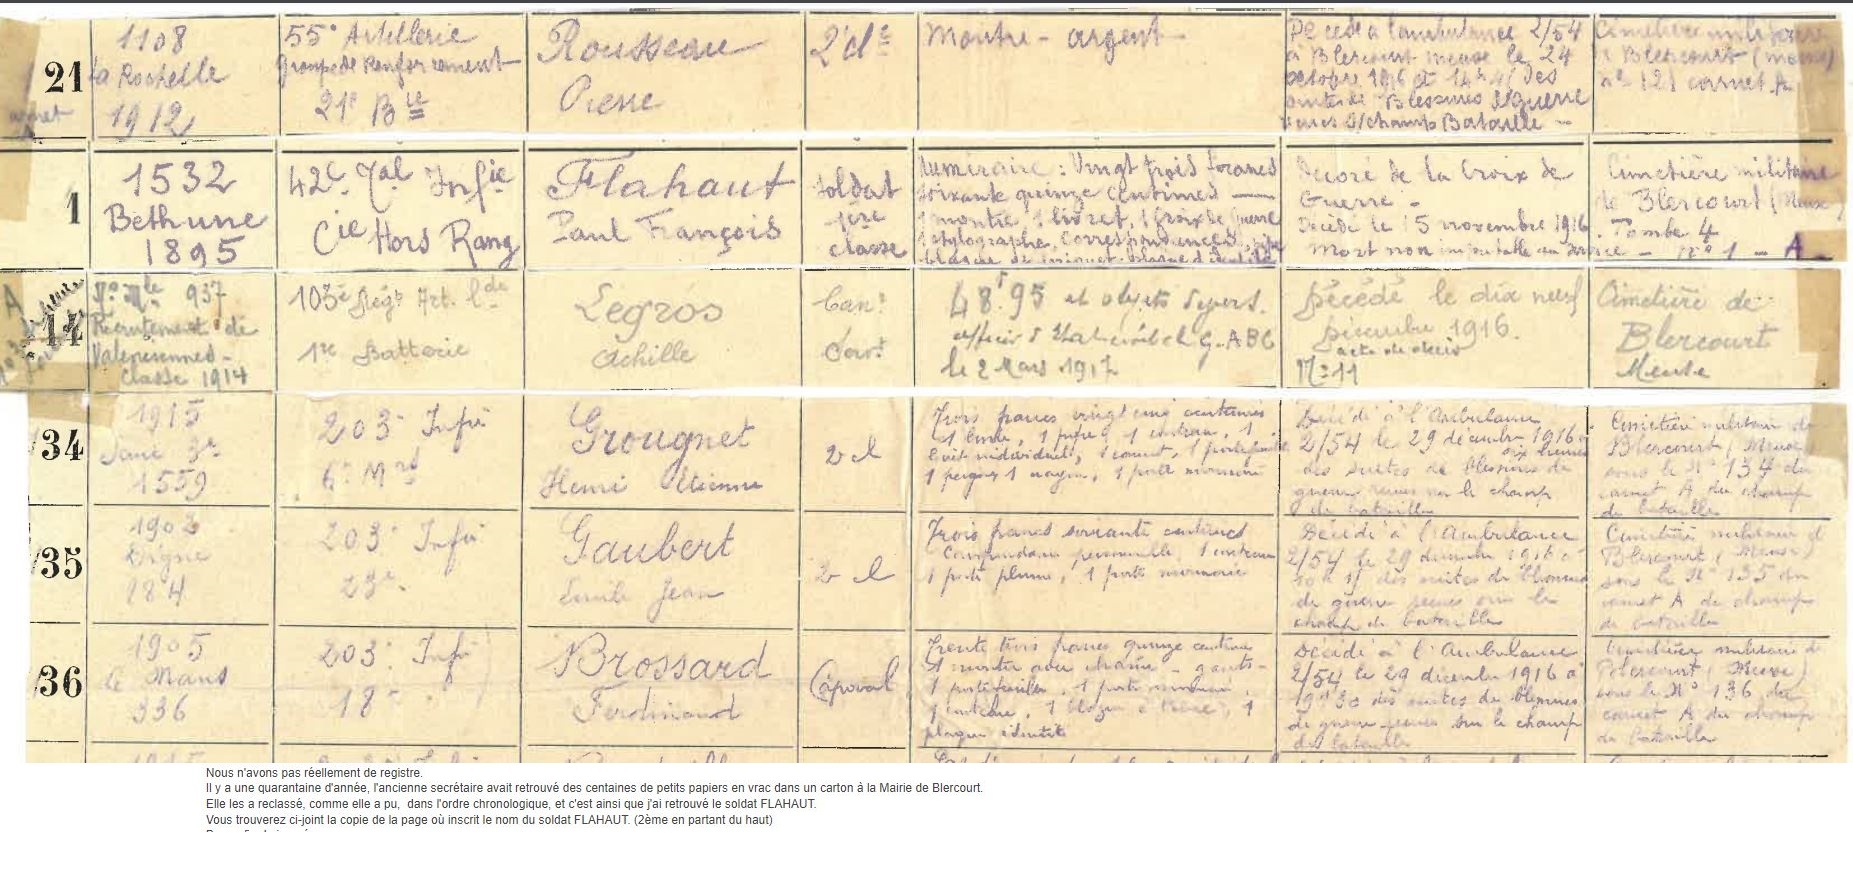 21
1108
la Rochelle
1912
55e Artillerie
Groupe de Renforcement
21e Bie
Rousseau
Pierre
2e cl
Montre - argent -
Décédé à l'ambulance 2/54
à Blercourt meuse le 24
octobre 1916 et 14h 4 / des
suites de Blessures de guerre
reçues s/champ Bataille -
Cimetière militaire
à Blercourt (meuse)
n° 121 carnet A
1
1532
Béthune
1895
42e Tal Infie
Cie Hors Rang
Flahaut
Paul François
soldat
1ère
classe
Numéraire : Vingt trois francs
soixante quinze centimes
1 montre, 1 livret, 1 Croix de Guerre
1 stylographe, Correspondances, pipe
Décoré de la Croix de
Guerre -
Décédé le 15 novembre 1916
Mort non imputable au service -
Cimetière militaire
de Blercourt (Meuse)
Tombe 4
N° 1 - A
14
No Mle 937
Recrutement de
Valenciennes -
Classe 1914
103e Régt Art. lde
1re Batterie
Legros
Achille
Can.
Cont
48f.95 et objets dépers.
le 2 Mars 1917
Décédé le dix neuf
Décembre 1916.
acte de décès
N° 11
Cimetière de
Blercourt
Meuse
134
1915
1559
203e Infie
6e
Grougnet
Henri Etienne
2 cl
Trois francs vingt cinq centimes
1 peigne 1 rasoir, 1 porte monnaie
Décédé à l'Ambulance
2/54 le 29 décembre 1916 à
six heures
des suites de blessures de
guerre reçues sur le champ
de bataille
Cimetière militaire de
Blercourt (Meuse)
sous le N° 134 du
carnet A du champ
de bataille
135
1902
Digne
184
203e Infie
23e
Gaubert
Emile Jean
2 cl
Trois francs soixante centimes
Correspondance personnelle, 1 couteau
1 porte plume, 1 porte monnaie
Décédé à l'Ambulance
2/54 le 29 décembre 1916 à
des suites de blessures
de guerre reçues sur le
champ de bataille
Cimetière militaire de
Blercourt (Meuse)
sous le N° 135 du
carnet A du champ
de bataille
136
1905
Le Mans
336
203e Infie
18e
Brossard
Ferdinand
Caporal
Trente trois francs quinze centimes
1 montre avec chaîne - gants -
1 portefeuille, 1 porte monnaie,
1 couteau, 1 blague à tabac, 1
plaque identité
Décédé à l'Ambulance
2/54 le 29 décembre 1916 à
19h30 des suites de blessures
de guerre reçues sur le champ
de bataille
Cimetière militaire de
Blercourt (Meuse)
sous le N° 136 du
carnet A du champ
de bataille
Nous n'avons pas réellement de registre.
Il y a une quarantaine d'année, l'ancienne secrétaire avait retrouvé des centaines de petits papiers en vrac dans un carton à la Mairie de Blercourt.
Elle les a reclassé, comme elle a pu, dans l'ordre chronologique, et c'est ainsi que j'ai retrouvé le soldat FLAHAUT.
Vous trouverez ci-joint la copie de la page où inscrit le nom du soldat FLAHAUT. (2ème en partant du haut)